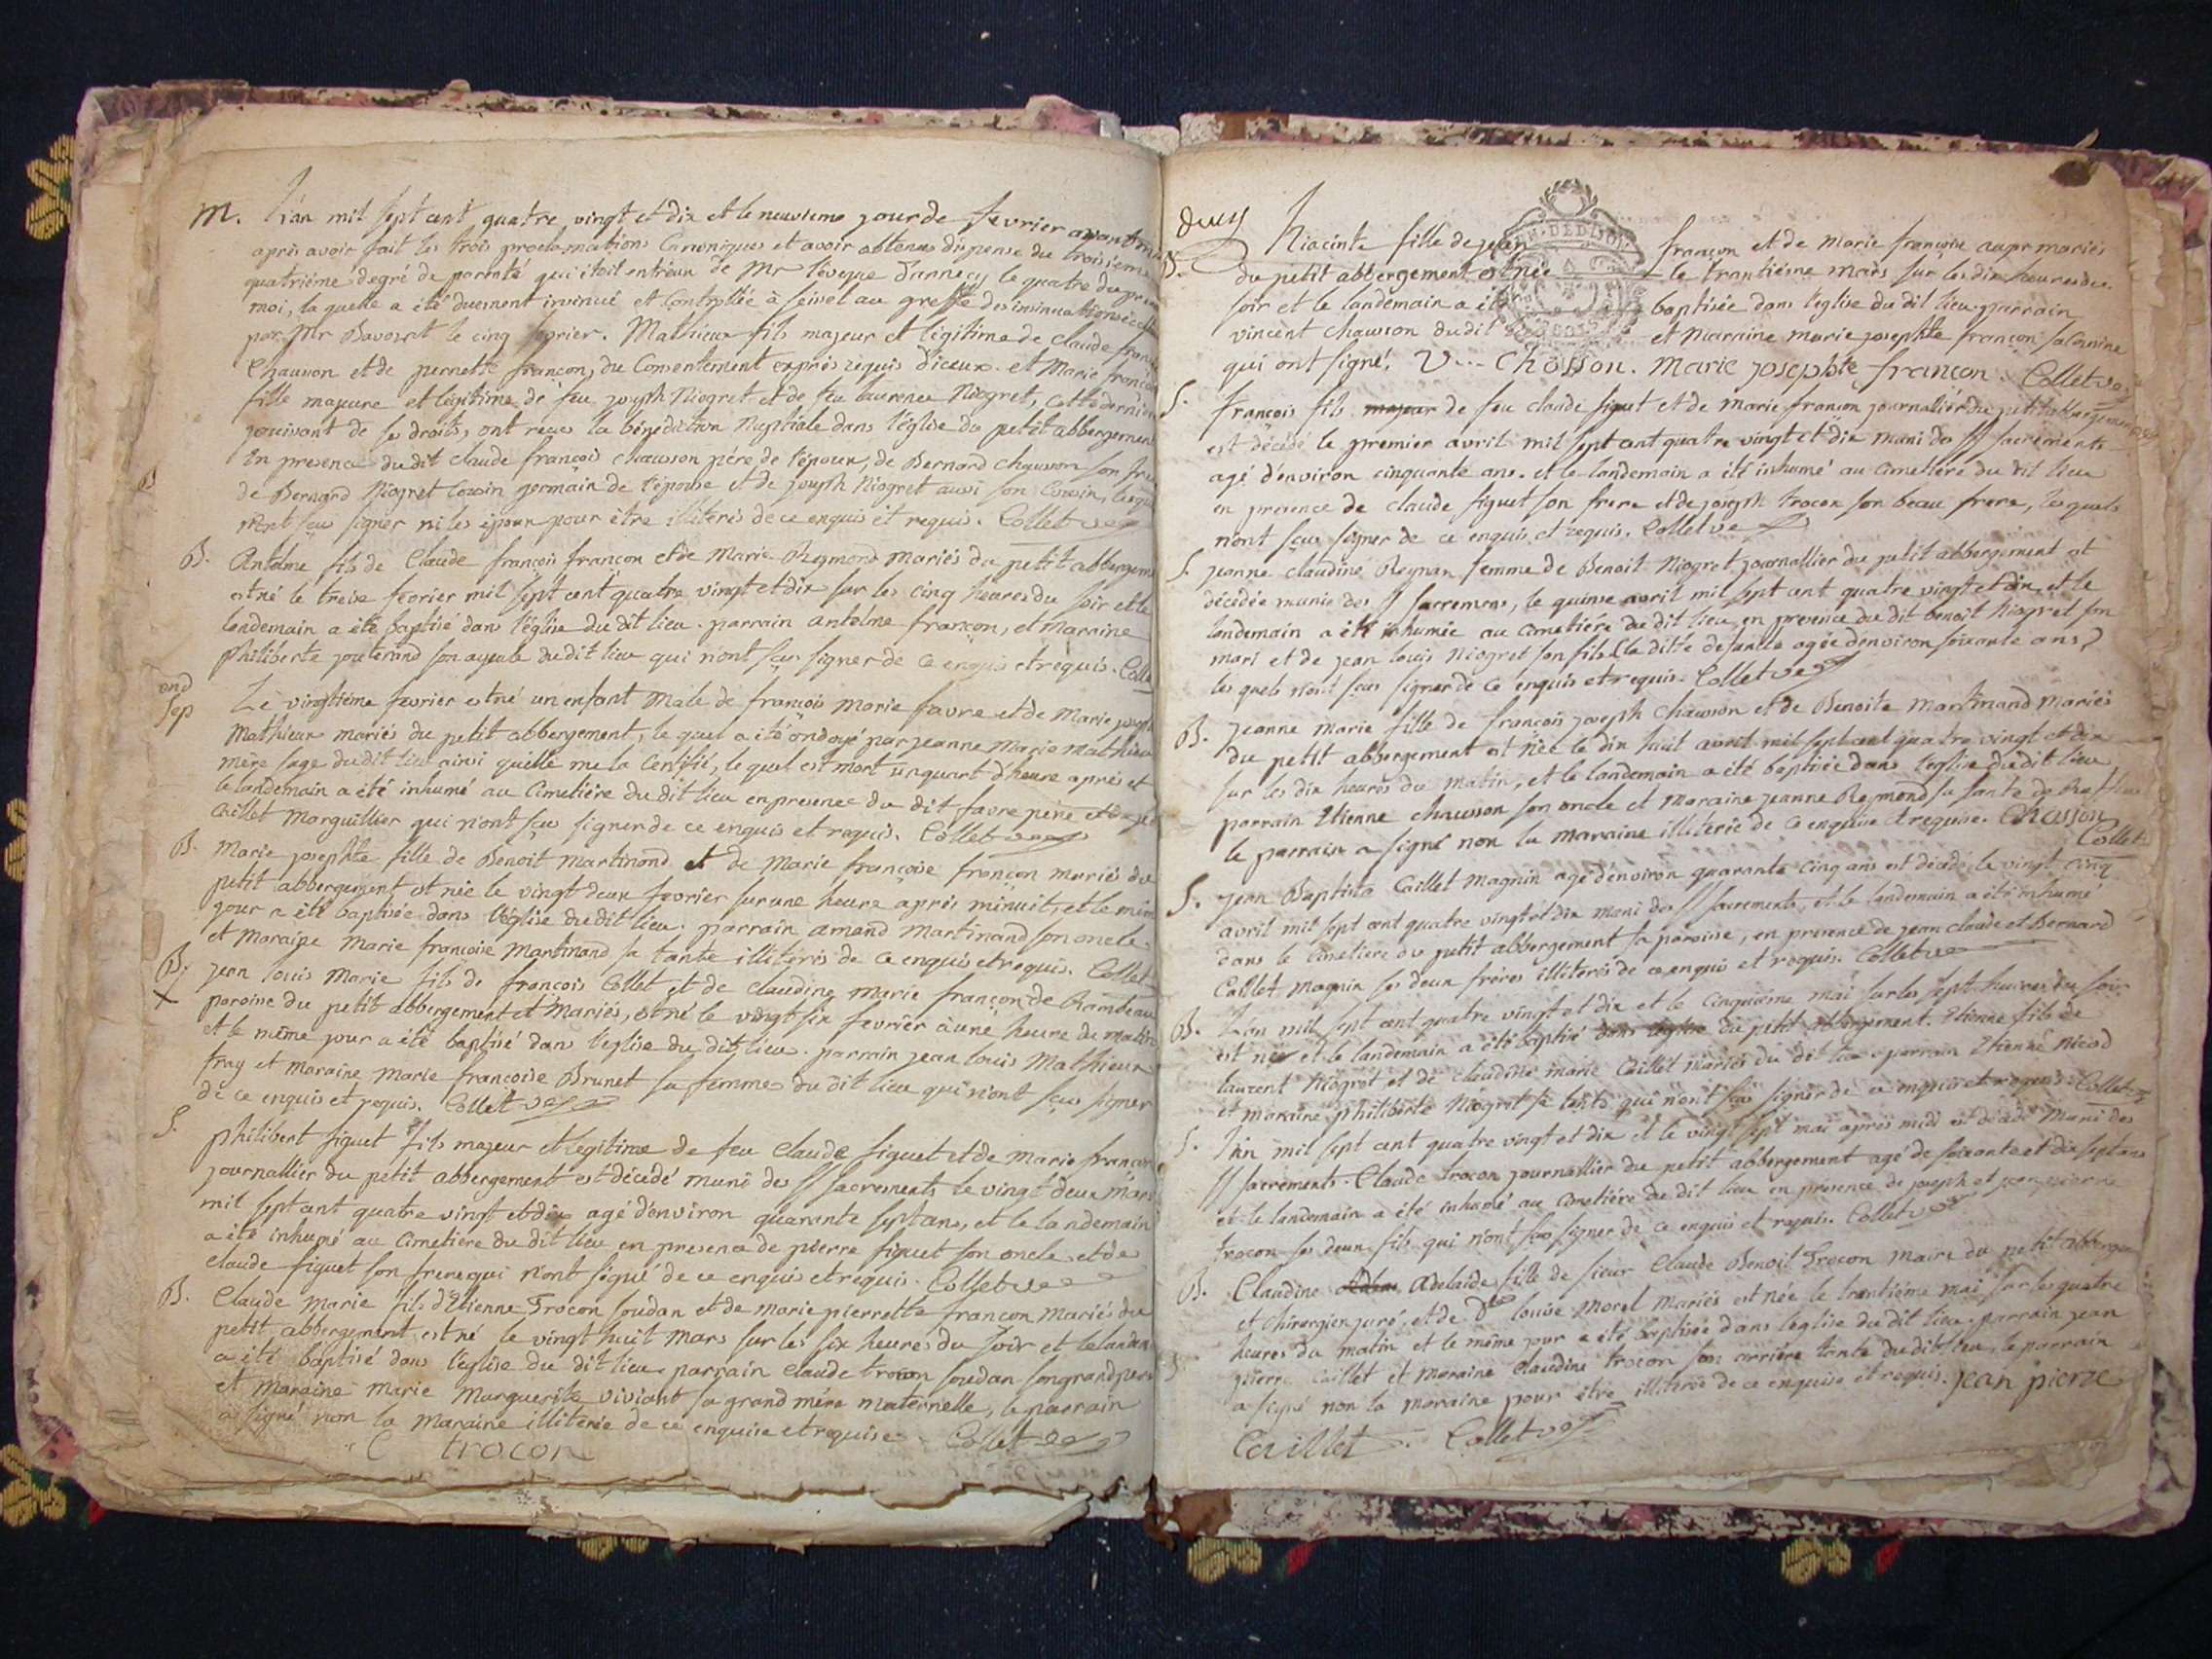 M. L'an mil sept cent quatre vingt et dix et le neuvieme jour de fevrier avant mi
après avoir fait les trois proclamations Canoniques et avoir obtenus dispense du troisieme
quatriéme degré de parenté qui étoit entréux de Mr l'éveque d'annecy le quatre du
moi, la quelle a été duement insinué et Controllée à seissel au greffe des insinuations
par Mr le cinq fevrier. Mathieu fils majeur et légitime de claude
Chausson et de pernette françon, du Consentement exprès requis d'iceux. et Marie
fille majeure et légitime de feu joseph Niogret et de feu laurence Niogret, cette
jouissant de ses droits, ont reçus la bénédiction Nuptiale dans l'église du petit abbergement
En presence dudit claude françois chausson pére de l'époux, de Bernard chausson son
de Bernard Niogret Cousin germain de l'épouse et de joseph Niogret aussi son Cousin,
n'ont sçus signer ni les époux pour être illiterés de ce enquis et requis. Collet
B. Antelme fils de Claude françois françon et de Marie Reymond mariés du petit abbergement
est né le treise fevrier mil sept cent quatre vingt et dix sur les cinq heures du soir et le
landemain a été baptisé dans l'église du dit lieu. parrain antelme françon, et Maraine
philiberte jouterand son ayeule dudit lieu qui n'ont sçus signer de ce enquis et requis. Collet
ond
Sep Le vingtiéme fevrier est né un enfant Male de françois Marie favre et de Marie
Mathieu mariés du petit abbergement, le quel a été ondoyé par jeanne Marie Mathieu
mère sage dudit lieu ainsi quelle me la Certifié, le quel est mort un quart d'heure après et
le landemain a été inhumé au Cimetière du dit lieu en presence du dit favre père
Caillet Marguillier qui n'ont sçus signer de ce enquis et requis. Collet
B. Marie josephte fille de Benoit Martinand et de Marie françoise françon mariés du
petit abbergement est née le vingt deux fevrier sur une heure après minuit, et le même
jour a été baptisée dans l'église du dit lieu. parrain amand Martinand son oncle
et Maraine Marie françoise Martinand sa tante illiterés de ce enquis et requis. Collet
B. jean louis Marie fils de françois Collet et de claudine Marie françon de
X paroisse du petit abbergement et Mariés, est né le vingt six fevrier à une heure du matin
et le même jour a été baptisé dans l'église du dit lieu. parrain jean louis Mathieu
fray et Maraine Marie françoise Brunet sa femme du dit lieu qui n'ont sçus signer
de ce enquis et requis. Collet
S. philibert figuet fils majeur et légitime de feu claude figuet et de Marie françon
journallier du petit abbergement est décédé muni des SS sacrements le vingt deux mars
mil sept cent quatre vingt et dix agé d'environ quarante sept ans, et le landemain
a été inhumé au Cimetière du dit lieu en presence de pierre figuet son oncle et de
claude figuet son frere qui n'ont signé de ce enquis et requis. Collet
B. Claude Marie fils d'Etienne Trocon soudan et de Marie pierrette françon Mariés du
petit abbergement est né le vingt huit Mars sur les six heures du soir et le landemain
a été baptisé dans l'église du dit lieu. parrain claude trocon soudan son grand pere
et Maraine Marie Marguerite viviant sa grand mére maternelle, le parrain
a signé non la Maraine illiterée de ce enquise et requise. Collet
C trocon
B. Hiacinte fille de jean françon et de Marie françoise mariés
du petit abbergement est née le trantiéme mars sur les dix heures du
soir et le landemain a été baptisée dans l'église du dit lieu. parrain
vincent chausson du dit et Maraine marie josephte françon sa Cousine
qui ont signé. V. Chosson. Marie josephte françon. Collet
S. françois fils de feu claude figuet et de marie françon journallier du petit abbergement
est décédé le premier avril mil sept cent quatre vingt et dix muni des SS sacrements
agé d'environ cinquante ans. et le landemain a été inhumé au Cimetière du dit lieu
en presence de claude figuet son frere et de joseph trocon son beau frere, les quels
n'ont sçus signer de ce enquis et requis. Collet
S. jeanne claudine Reynan femme de Benoit Niogret journallier du petit abbergement est
décédée munie des SS sacremens, le quinse avril mil sept cent quatre vingt et dix, et le
landemain a été inhumée au Cimetière du dit lieu, en presence du dit benoit Niogret son
mari et de jean louis Niogret son fils (la ditte defuncte agée d'environ soixante ans)
les quels n'ont sçus signer de ce enquis et requis. Collet
B. jeanne Marie fille de françois joseph chausson et de Benoite Martinand Mariés
du petit abbergement est née le dix huit avril mil sept cent quatre vingt et dix
sur les dix heures du matin, et le landemain a été baptisée dans l'église du dit lieu
parrain Etienne chausson son oncle et Maraine jeanne Reymond sa tante
le parrain a signé non la Maraine illiterée de ce enquise et requise. Chosson
Collet
S. jean Baptiste Caillet Magnin agé d'environ quarante cinq ans est décédé le vingt cinq
avril mil sept cent quatre vingt et dix muni des SS sacrements, et le landemain a été inhumé
dans le Cimetiere du petit abbergement sa paroisse, en presence de jean claude et Bernard
Caillet Magnin ses deux fréres illiterés de ce enquis et requis. Collet
B. L'an mil sept cent quatre vingt et dix et le Cinquiéme mai sur les sept heures du soir
est né et le landemain a été baptisé du petit abbergement. Etienne fils de
laurent Niogret et de claudine marie Caillet mariés du dit lieu. parrain Etienne Nicod
et Maraine philiberte Niogret sa tante qui n'ont sçus signer de ce enquis et requis. Collet
S. L'an mil sept cent quatre vingt et dix et le vingt sept mai après midi est décédé Muni des
SS sacrements. Claude Trocon journallier du petit abbergement agé de soixante et dix sept ans
et le landemain a été inhumé au Cimetière du dit lieu en presence de joseph et jean pierre
trocon ses deux fils qui n'ont sçus signer de ce enquis et requis. Collet
B. Claudine adelaide fille de sieur Claude Benoit Trocon Maire du petit abbergement
et chirurgien juré, et de Dlle louise Morel Mariés est née le trentiéme mai sur les quatre
heures du matin et le même jour a été baptisée dans l'église du dit lieu. parrain jean
pierre Caillet et Maraine Claudine trocon son arriére tante du dit lieu, le parrain
a signé non la Maraine pour être illiterée de ce enquise et requis. jean pierre
Caillet Collet